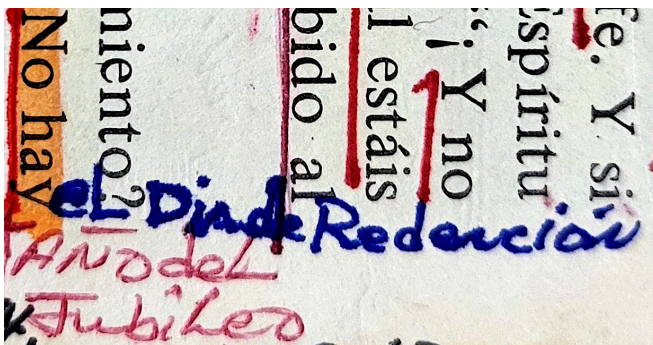 fe. Y si
Espíritu
¡Y no
l estáis
bido al
niento?
No hay
eL Dia de Redención
AÑO deL
JubiLeo